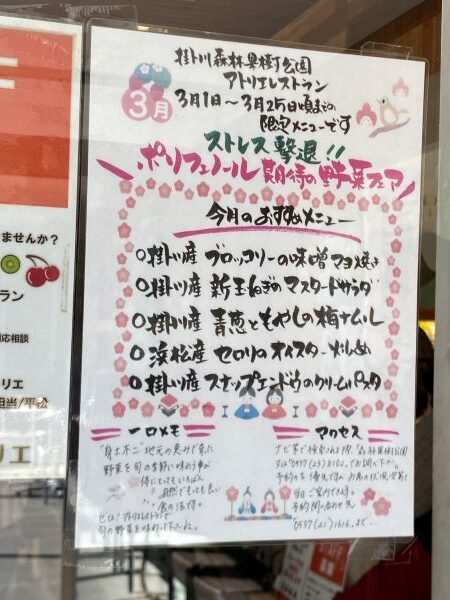 掛川森林果樹公園
アトリエレストラン
3月
3月1日〜3月25日頃までの
限定メニューです
ストレス撃退!!
ポリフェノール期待の野菜フェア
今月のおすすめメニュー
○掛川産 ブロッコリーの味噌マヨ焼き
○掛川産 新玉ねぎのマスタードサラダ
○掛川産 青葱ともやしの梅ナムル
○浜松産 セロリのオイスター炒め
○掛川産 スナップエンドウのクリームパスタ
一口メモ
"身土不二"地元の恵みで育った
野菜を旬の季節に味わう事が
体にとってもいちばん
自然でもっとも良い
食の法則。
ぜひ!アトリエレストランで
旬の野菜を味わって
アクセス
ナビ等で検索される際、"森林果樹公園
又は0537(23)8102
予約の方優先
当日ご案内できます。
予約問い合わせ先
0537(21)1616まで…
ませんか?
ラン
対応相談
リエ
担当/平松
リエ